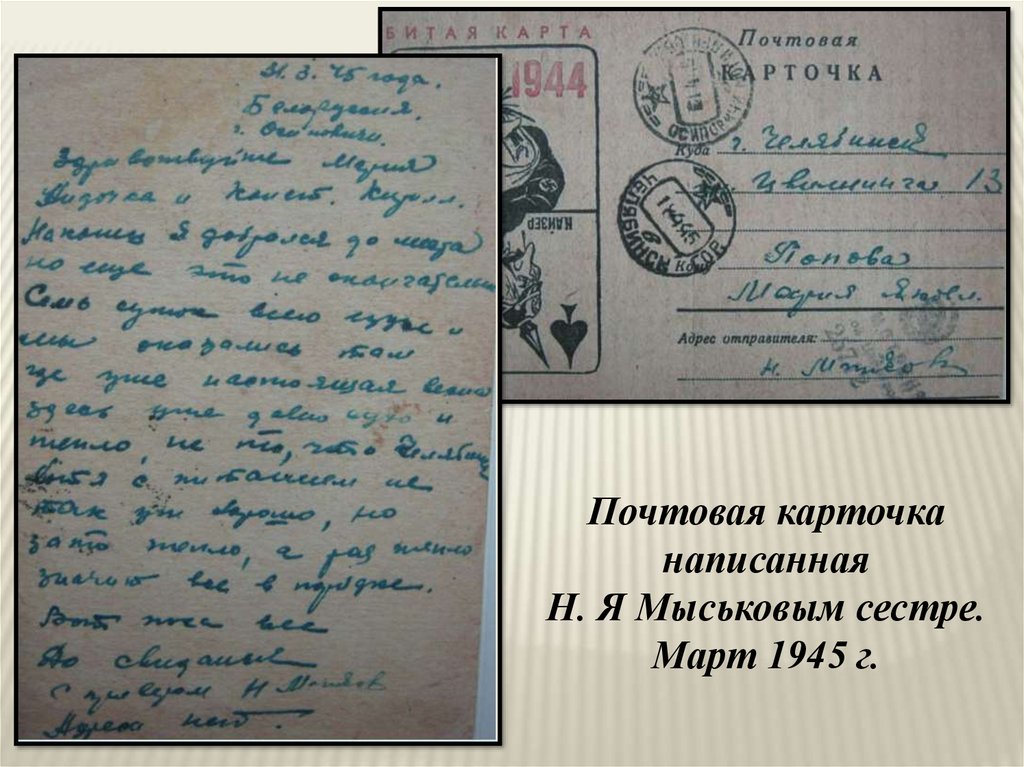 31.3.45 года.
Белоруссия.
г. Осиповичи.
Здравствуйте Мария
и Конст. Кирилл.
Наконец я добрался до места
но еще это не окончательно
Семь суток всего езды и
мы оказались там
где уже настоящая весна
здесь уже давно сухо и
тепло, не то, что Челябинск
хотя с питанием не
так уж хорошо, но
зато тепло, а раз тепло
значит все в порядке.
Вот пока все
До свиданья
С приветом Н Мыськов
Адреса нет.
БИТАЯ КАРТА
1944
КАЙЗЕР
Почтовая
КАРТОЧКА
ОСИПОВИЧИ
Куда г. Челябинск
Цвиллинга 13
ЧЕЛЯБИНСК
11.4.45
Кому Попова
Мария Яковл.
Адрес отправителя:
Н. Мыськов
Почтовая карточка
написанная
Н. Я Мыськовым сестре.
Март 1945 г.